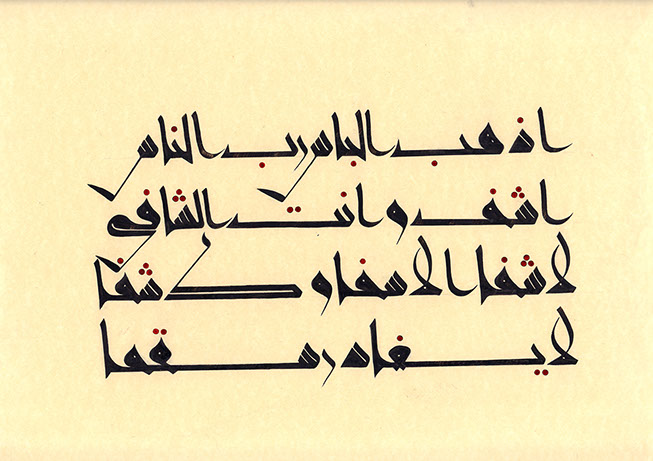 اذهب الباس رب الناس
اشف وانت الشافي
لا شفا الا شفاوك شفا
لا يغادر سقما